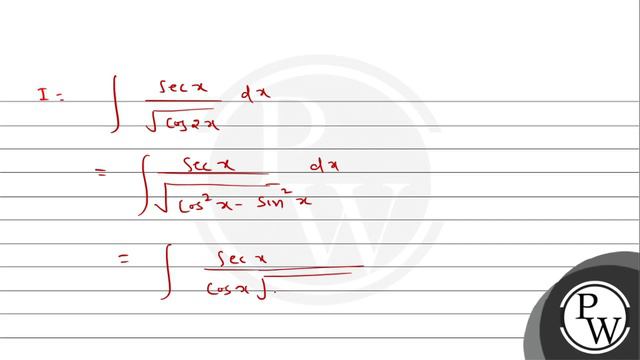 I = ∫ sec x / √cos 2x dx
= ∫ sec x / √cos²x - sin²x dx
= ∫ sec x / cos x √
PW
PW